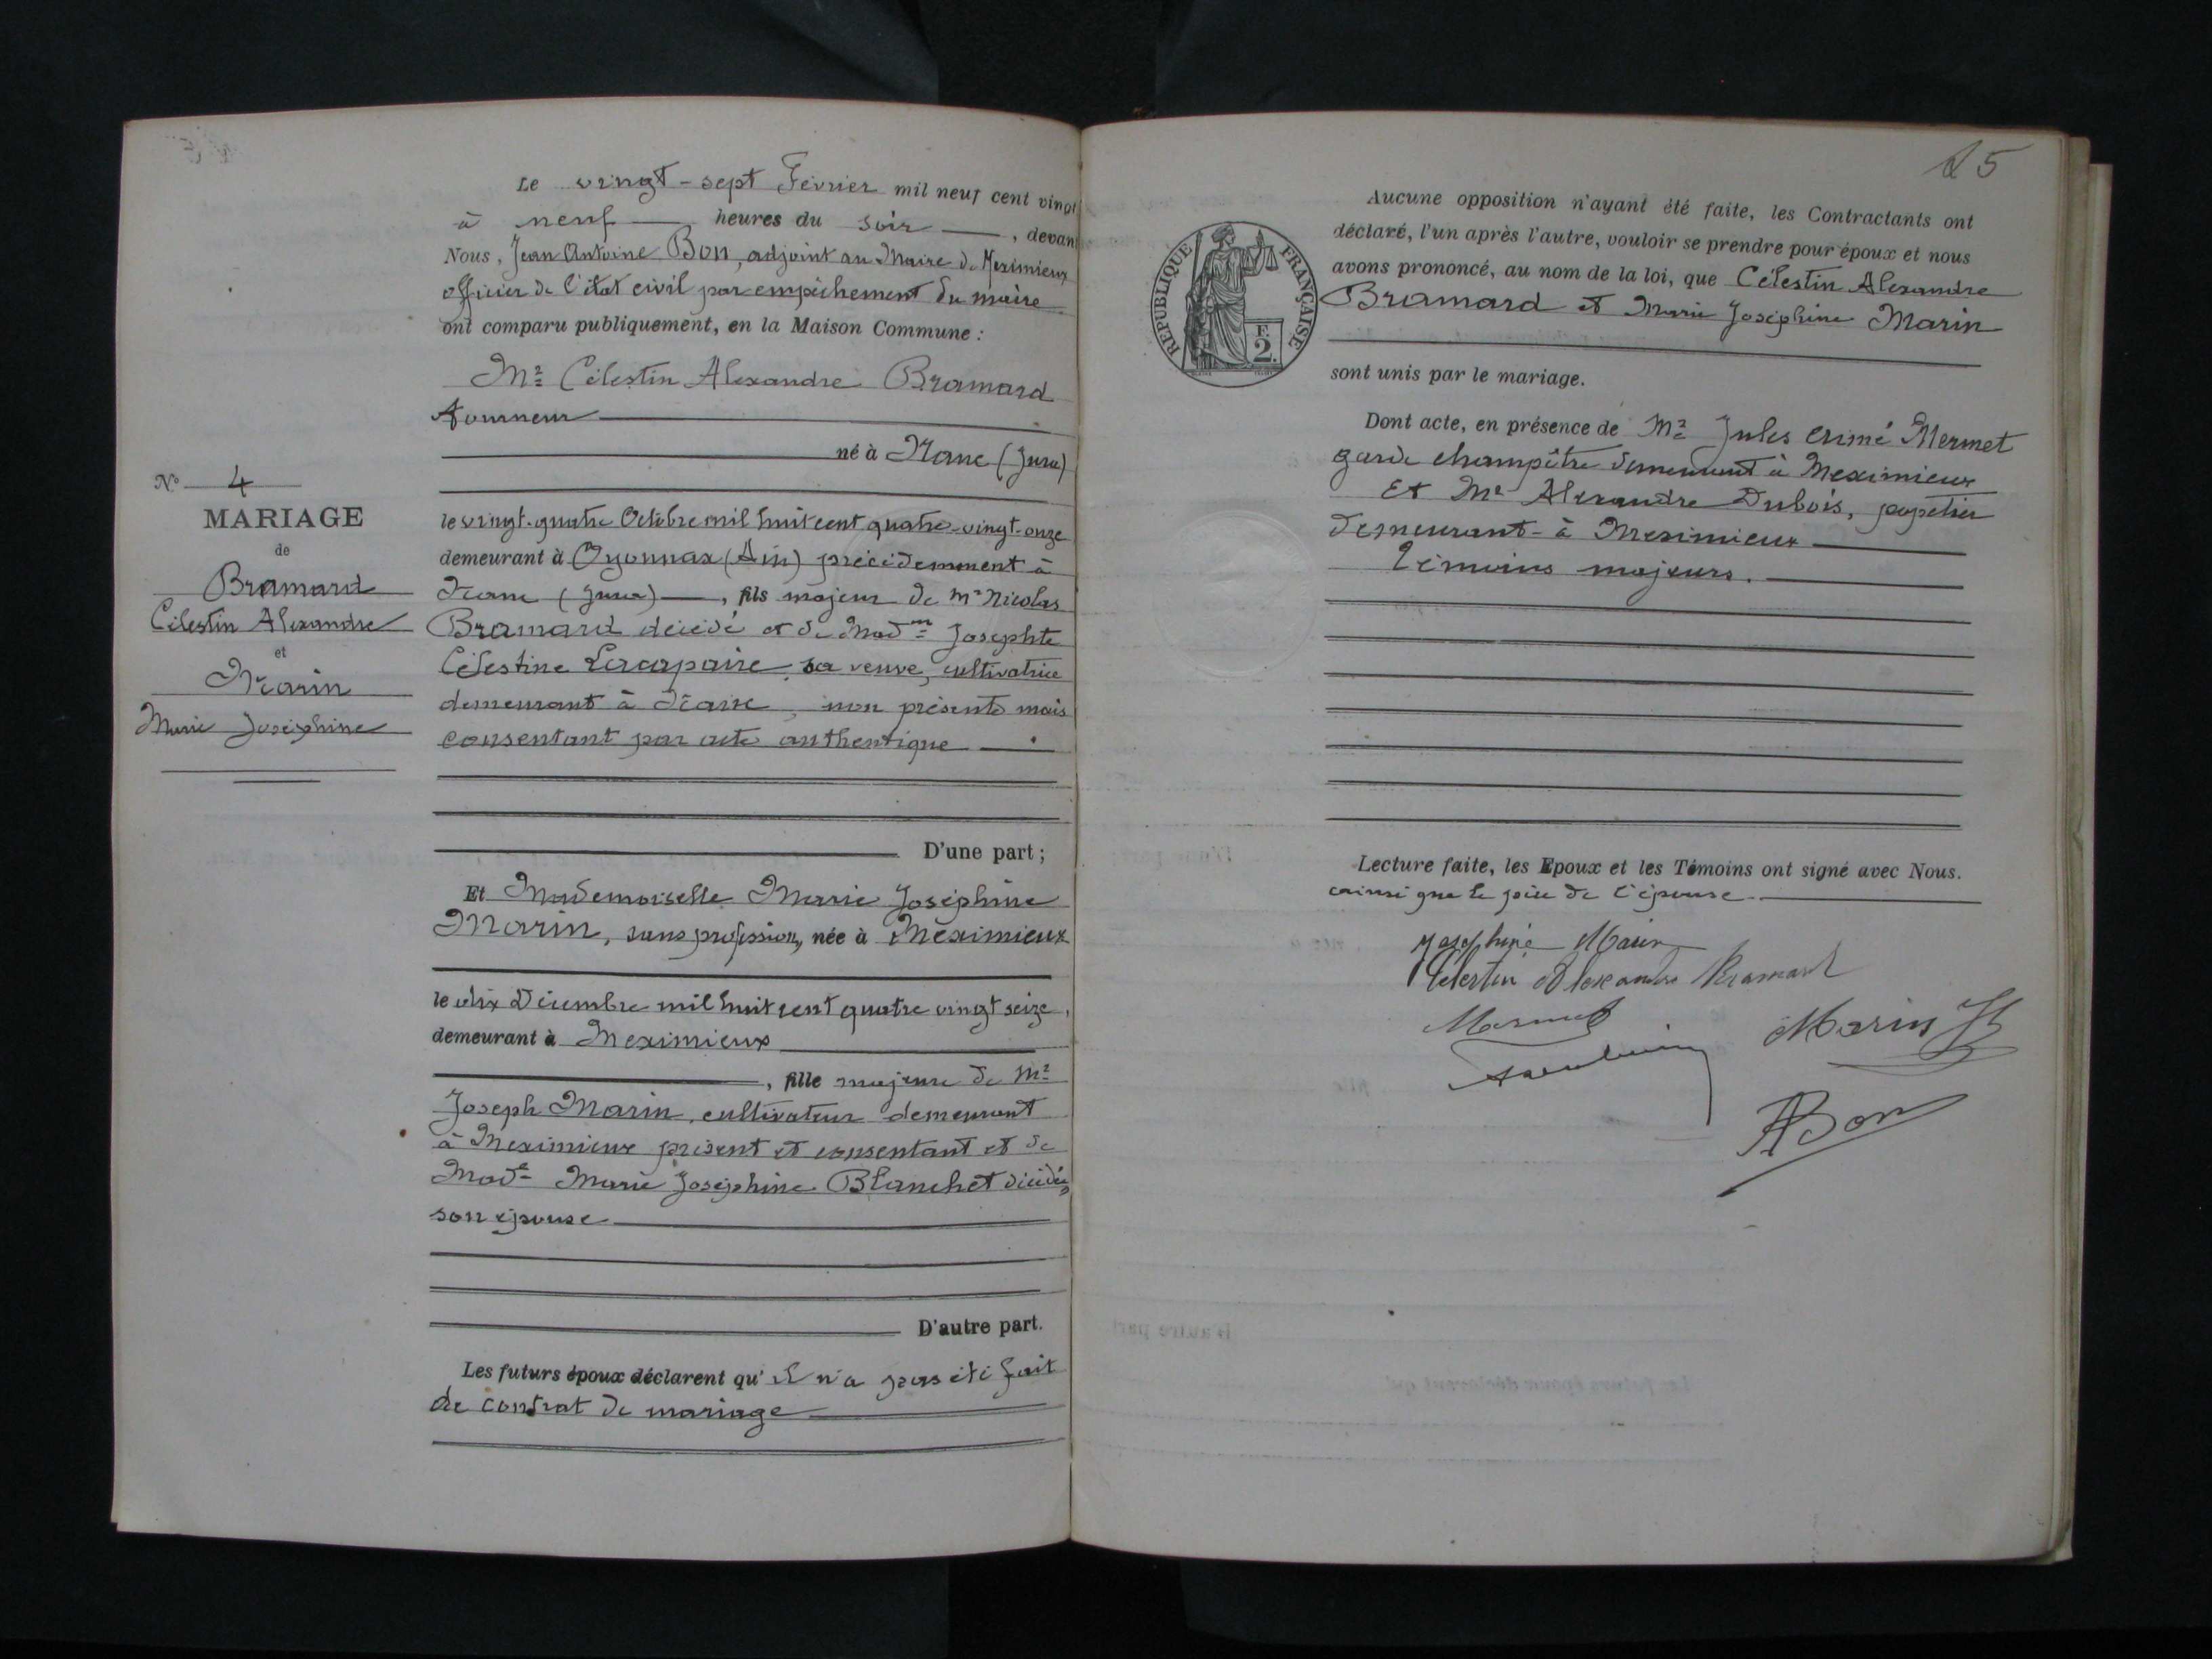 Le vingt-sept Février mil neuf cent vingt
à neuf heures du soir, devan
Nous, Jean Antoine Bon, adjoint au Maire de Meximieux
officier de l'état civil par empêchement du maire
ont comparu publiquement, en la Maison Commune :
Mr Célestin Alexandre Bramard
tourneur
né à Nanc (Jura)
le vingt-quatre Octobre mil huit cent quatre-vingt-onze
demeurant à Oyonnax (Ain) précédemment à
Nanc (Jura), fils majeur de Mr Nicolas
Bramard décédé et de Madme Josephte
Célestine Lacapaire, sa veuve, cultivatrice
demeurant à Nanc, non présente mais
consentant par acte authentique
D'une part ;
Et Mademoiselle Marie Joséphine
Marin, sans profession, née à Méximieux
le dix Décembre mil huit cent quatre vingt seize,
demeurant à Meximieux
, fille majeure de Mr
Joseph Marin, cultivateur demeurant
à Meximieux présent et consentant et de
Made Marie Joséphine Blanchet décédée
son épouse
D'autre part.
Les futurs époux déclarent qu'il n'a pas été fait
de contrat de mariage
No 4
MARIAGE
de
Bramard
Célestin Alexandre
et
Marin
Marie Joséphine
25
REPUBLIQUE FRANÇAISE
F.
2.
Aucune opposition n'ayant été faite, les Contractants ont
déclaré, l'un après l'autre, vouloir se prendre pour époux et nous
avons prononcé, au nom de la loi, que Célestin Alexandre
Bramard et Marie Joséphine Marin
sont unis par le mariage.
Dont acte, en présence de Mr Jules Aimé Mermet
garde champêtre demeurant à Meximieux
Et Mr Alexandre Dubois, papetier
demeurant à Meximieux
témoins majeurs.
Lecture faite, les Epoux et les Témoins ont signé avec Nous.
ainsi que le père de l'épouse
Joséphine Marin
Célestin Alexandre Bramard
Mermet
Marin J
ABon